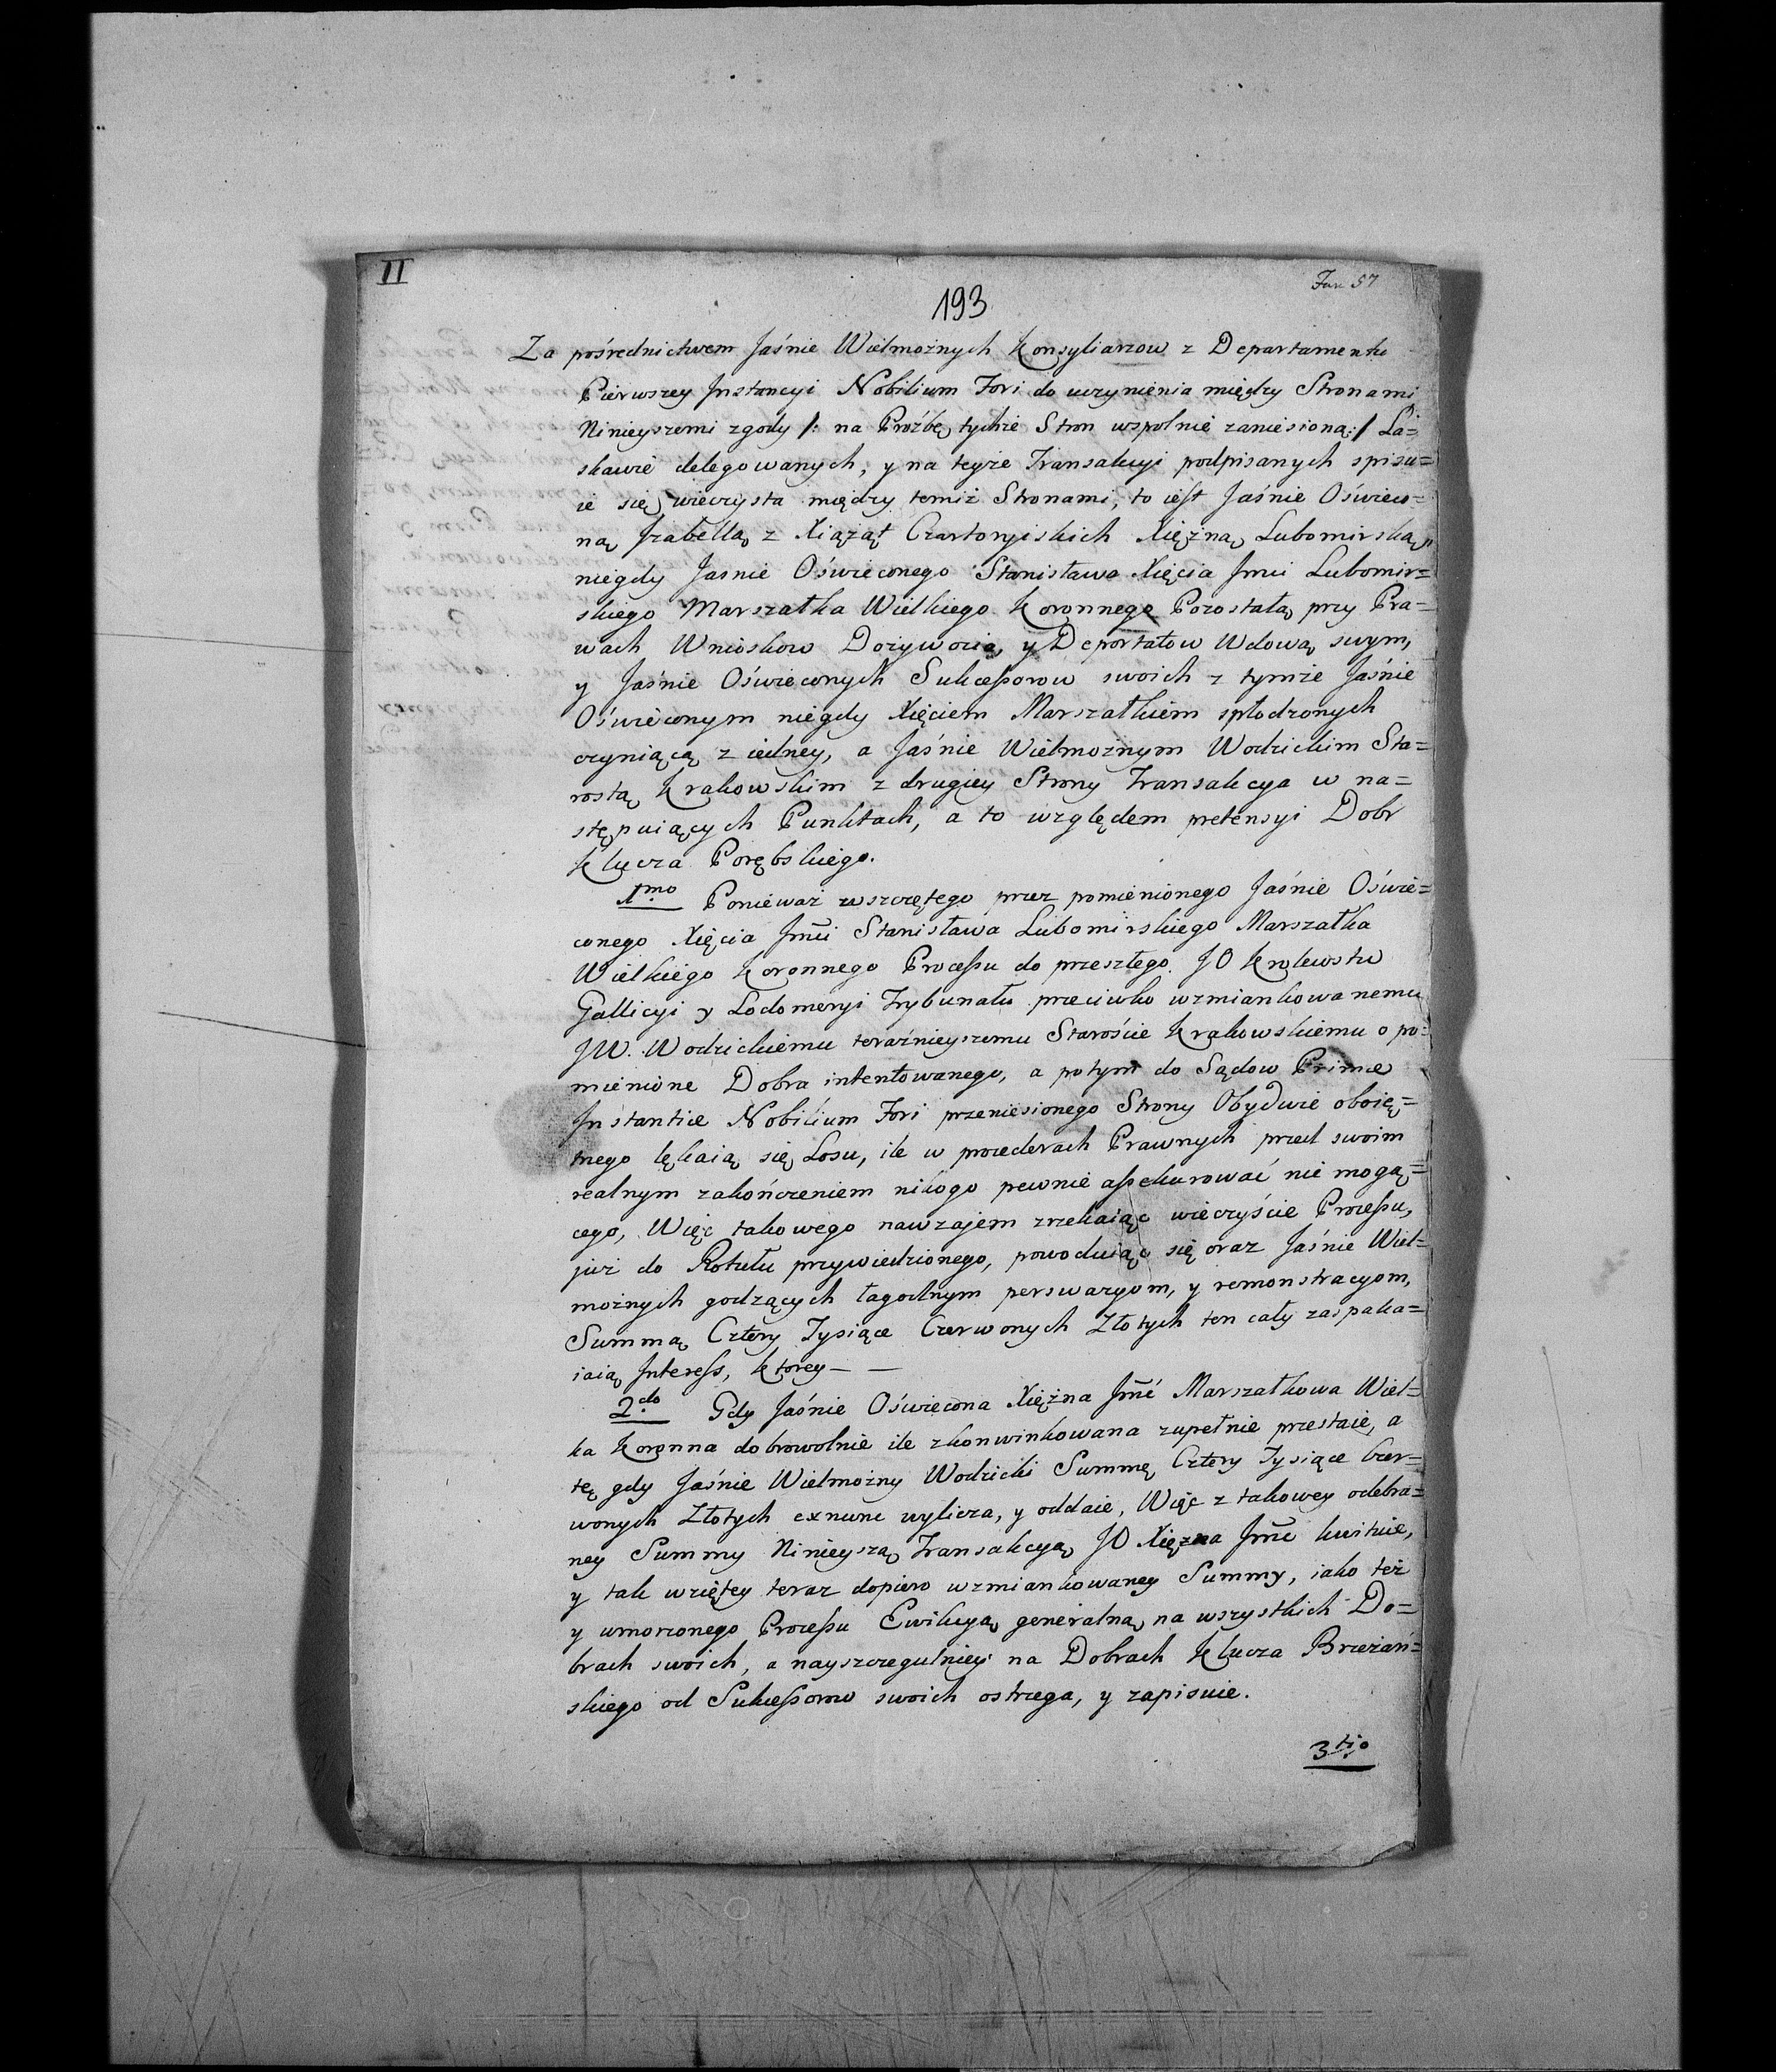 II
193
Fasc 57
Za pośrednictwem Jaśnie Wielmożnych Konsyliarzow z Departamentu
Pierwszey Jnstancyi Nobilium Fori do uczynienia między Stronami
Ninieyszemi zgody /: na Proźbę tychże Stron wspolnie zaniesioną :/ Ła=
skawie delegowanych, y na teyże Transakcyi podpisanych spisu=
ie się wieczysta między temiż Stronami, to iest Jaśnie Oświeco=
ną Jzabellą z Xiążąt Czartoryiskich Xiężną Lubomirską,
niegdy Jasnie Oświeconego Stanisława Xięcia Jmci Lubomir=
skiego Marszałka Wielkiego Koronnego Pozostałą przy Pra=
wach Wnioskow Dożywocia, y Deportatow Wdową swym,
y Jaśnie Oświeconych Sukcessorow swoich z tymże Jaśnie
Oświeconym niegdy Xięciem Marszałkiem spłodzonych
czyniącą z iedney, a Jaśnie Wielmożnym Wodzickim Sta=
rostą Krakowskim z drugiey Strony Transakcya w na=
stępuiących Punktach, a to względem pretensyi Dobr
Klucza Porębskiego.
1mo Ponieważ wszczętego przez pomienionego Jaśnie Oświe=
conego Xięcia Jmci Stanisława Lubomirskiego Marszałka
Wielkiego Koronnego Processu do przeszłego JO Krolewstw
Gallicyi y Lodomeryi Trybunału przeciwko wzmiankowanemu
JW. Wodzickiemu teraźnieyszemu Staroście Krakowskiemu o po=
mienione Dobra intentowanego, a potym do Sądow Primæ
Jnstantiæ Nobilium Fori przeniesionego Strony Obydwie oboię=
tnego lękaią się Losu, ile w procederach Prawnych przed swoim
realnym zakończeniem nikogo pewnie assekurować nie mogą=
cego, Więc takowego nawzajem zrzekaiąc wieczyście Processu,
już do Rotułu przywiedzionego, powoduiąc się oraz Jaśnie Wiel=
możnych godzących łagodnym perswazyom, y remonstracyom,
Summą Cztery Tysiące Czerwonych Złotych ten cały zaspaka=
iaią Jnteress, Ktorey — —
2do Gdy Jaśnie Oświecona Xiężna Jmć Marszałkowa Wiel=
ka Koronna dobrowolnie ile zkonwinkowana zupełnie przestaie, a
tę gdy Jaśnie Wielmożny Wodzicki Summę Cztery Tysiące Czer=
wonych Złotych exnunc wylicza, y oddaie, Więc z takowey odebra=
ney Summy Ninieyszą Transakcyą JO Xiężna Jmć kwituie,
y tak wziętey teraz dopiero wzmiankowaney Summy, iako też
y umorzonego Processu Ewikcyą generalną na wszystkich Do=
brach swoich, a nayszczegulniey na Dobrach Klucza Brzezań=
skiego od Sukcessorow swoich ostrzega, y zapisuie.
3tio